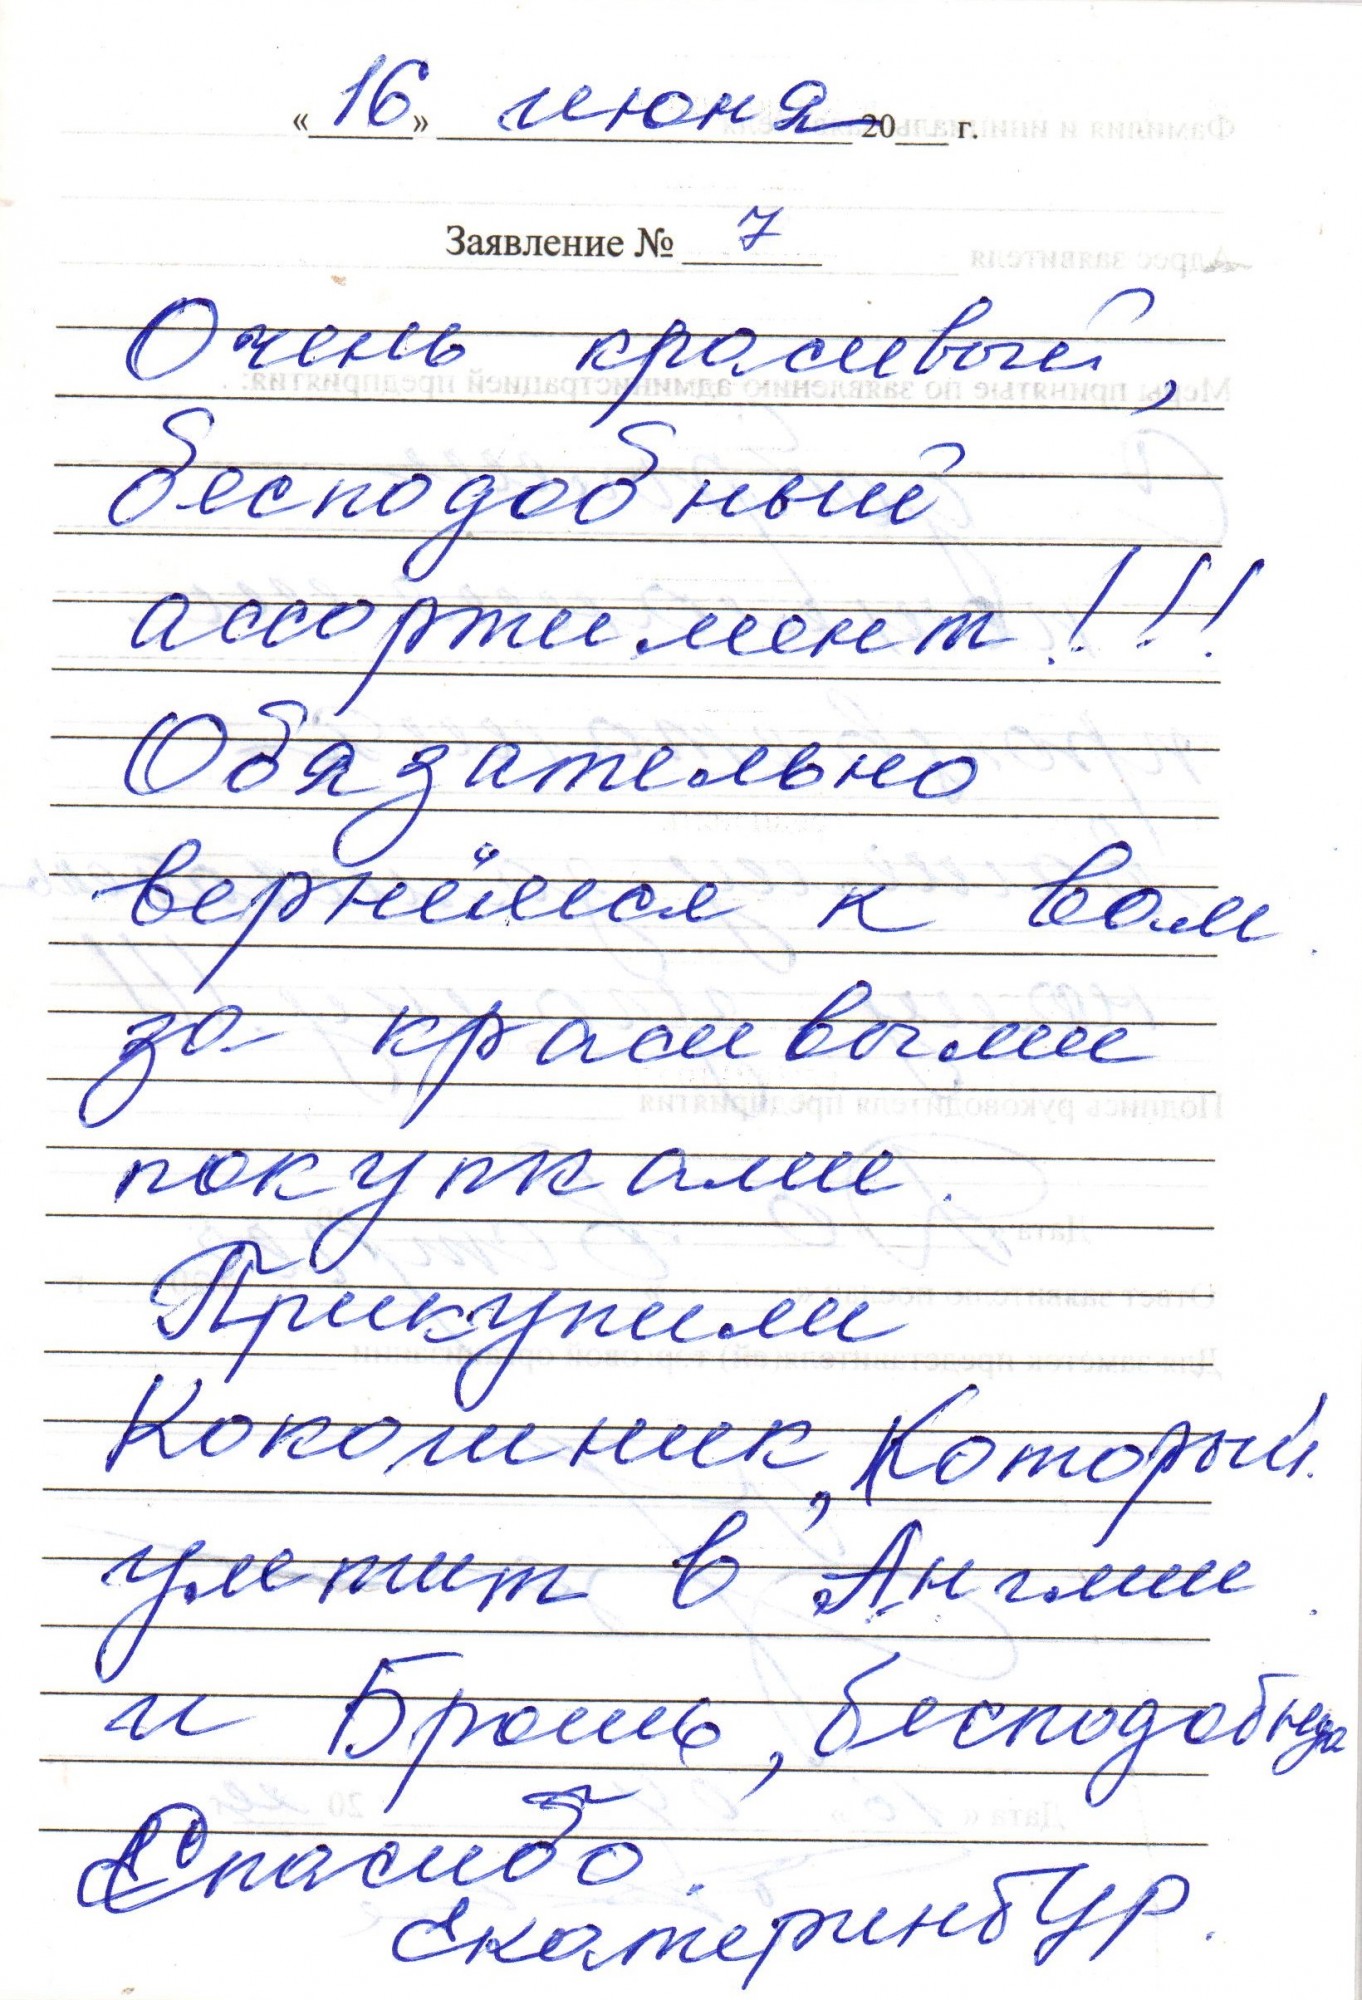 «16» июня 20___ г.
Заявление № 7
Очень красивый,
бесподобный
ассортимент!!!
Обязательно
вернёмся к вам
за красивыми
покупками.
Прикупили
Кокошник, Который
улетит в Англии
и Брошь, бесподобная
Спасибо.
Екатеринбур.